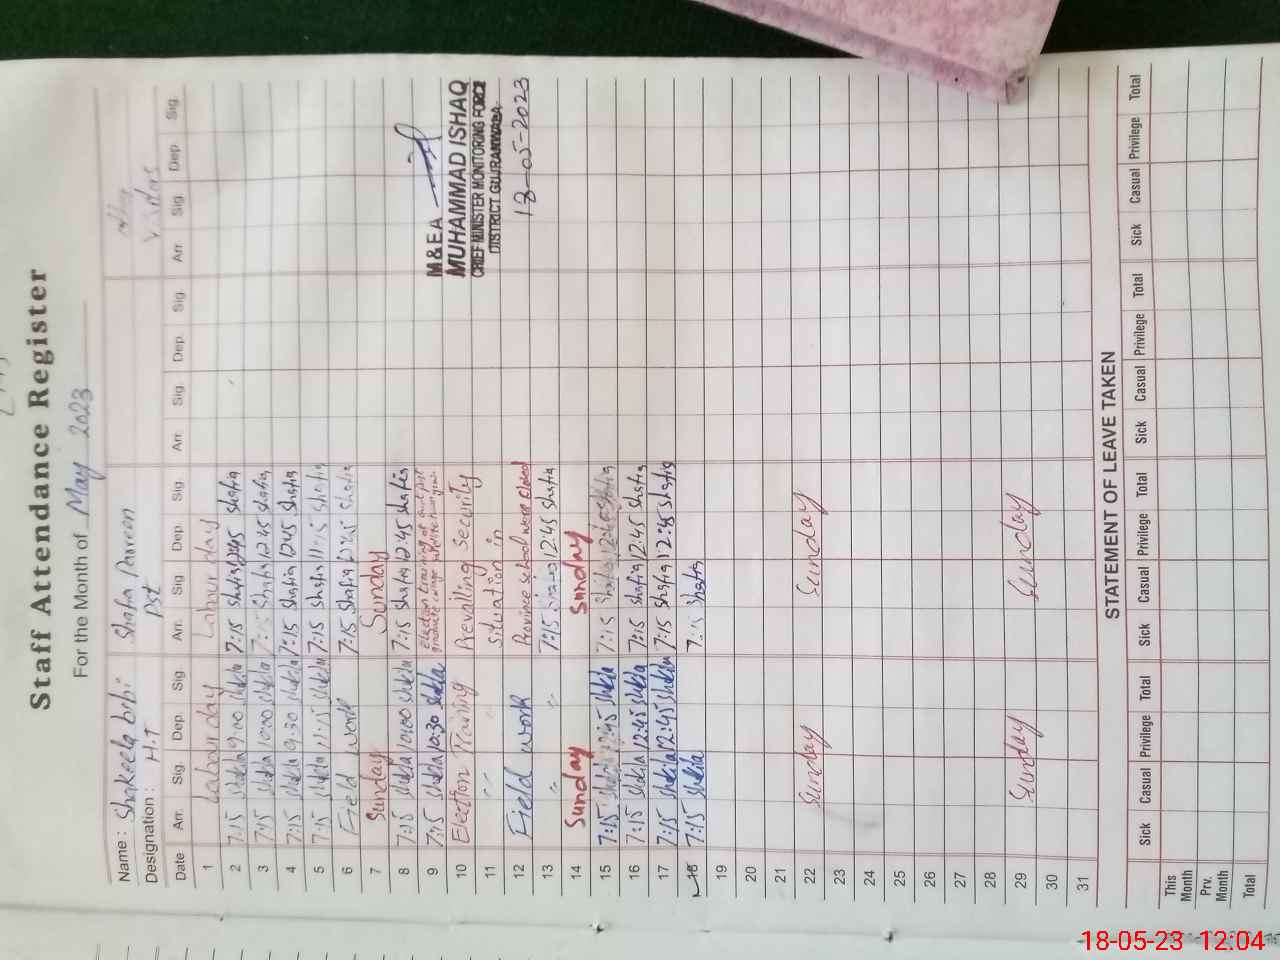 Staff Attendance Register
For the Month of May 2023
Name: Shakeela bibi Shafia Parveen
Designation: H.T Pst Visitors
Date Arr. Sig. Dep. Sig Arr. Sig Dep. Sig. Arr Sig. Dep. Sig. Arr Sig Dep Sig
1 Labour day Labour day
2 7:15 Shakila 9:00 Shakila 7:15 Shafia 12:45 Shafia
3 7:15 Shakila 10:00 Shakila 7:15 Shafia 12:45 Shafia
4 7:15 Shakila 9:30 Shakila 7:15 Shafia 12:45 Shafia
5 7:15 Shakila 11:15 Shakila 7:15 Shafia 11:15 Shafia
6 Field work 7:15 Shafia 12:45 Shafia
7 Sunday Sunday
8 7:15 Shakila 10:00 Shakila 7:15 Shafia 12:45 Shafia
9 7:15 Shakila 10:30 Shakila Election training at
10 Election Training Prevailing Security
11 〃 〃 situation in
12 Field work Province school were closed
13 〃 〃 7:15 Shafia 12:45 Shafia
14 Sunday Sunday
15 7:15 Shakila 12:45 Shakila 7:15 Shafia 12:45 Shafia
16 7:15 Shakila 12:45 Shakila 7:15 Shafia 12:45 Shafia
17 7:15 Shakila 12:45 Shakila 7:15 Shafia 12:45 Shafia
18 7:15 Shakila 7:15 Shafia
19
20
21
22 Sunday Sunday
23
24
25
26
27
28
29 Sunday Sunday
30
31
M & E A
MUHAMMAD ISHAQ
CHIEF MINISTER MONITORING FORCE
DISTRICT GUJRANWALA
18-05-2023
STATEMENT OF LEAVE TAKEN
Sick Casual Privilege Total Sick Casual Privilege Total Sick Casual Privilege Total Sick Casual Privilege Total
This Month
Prv. Month
Total
18-05-23 12:04